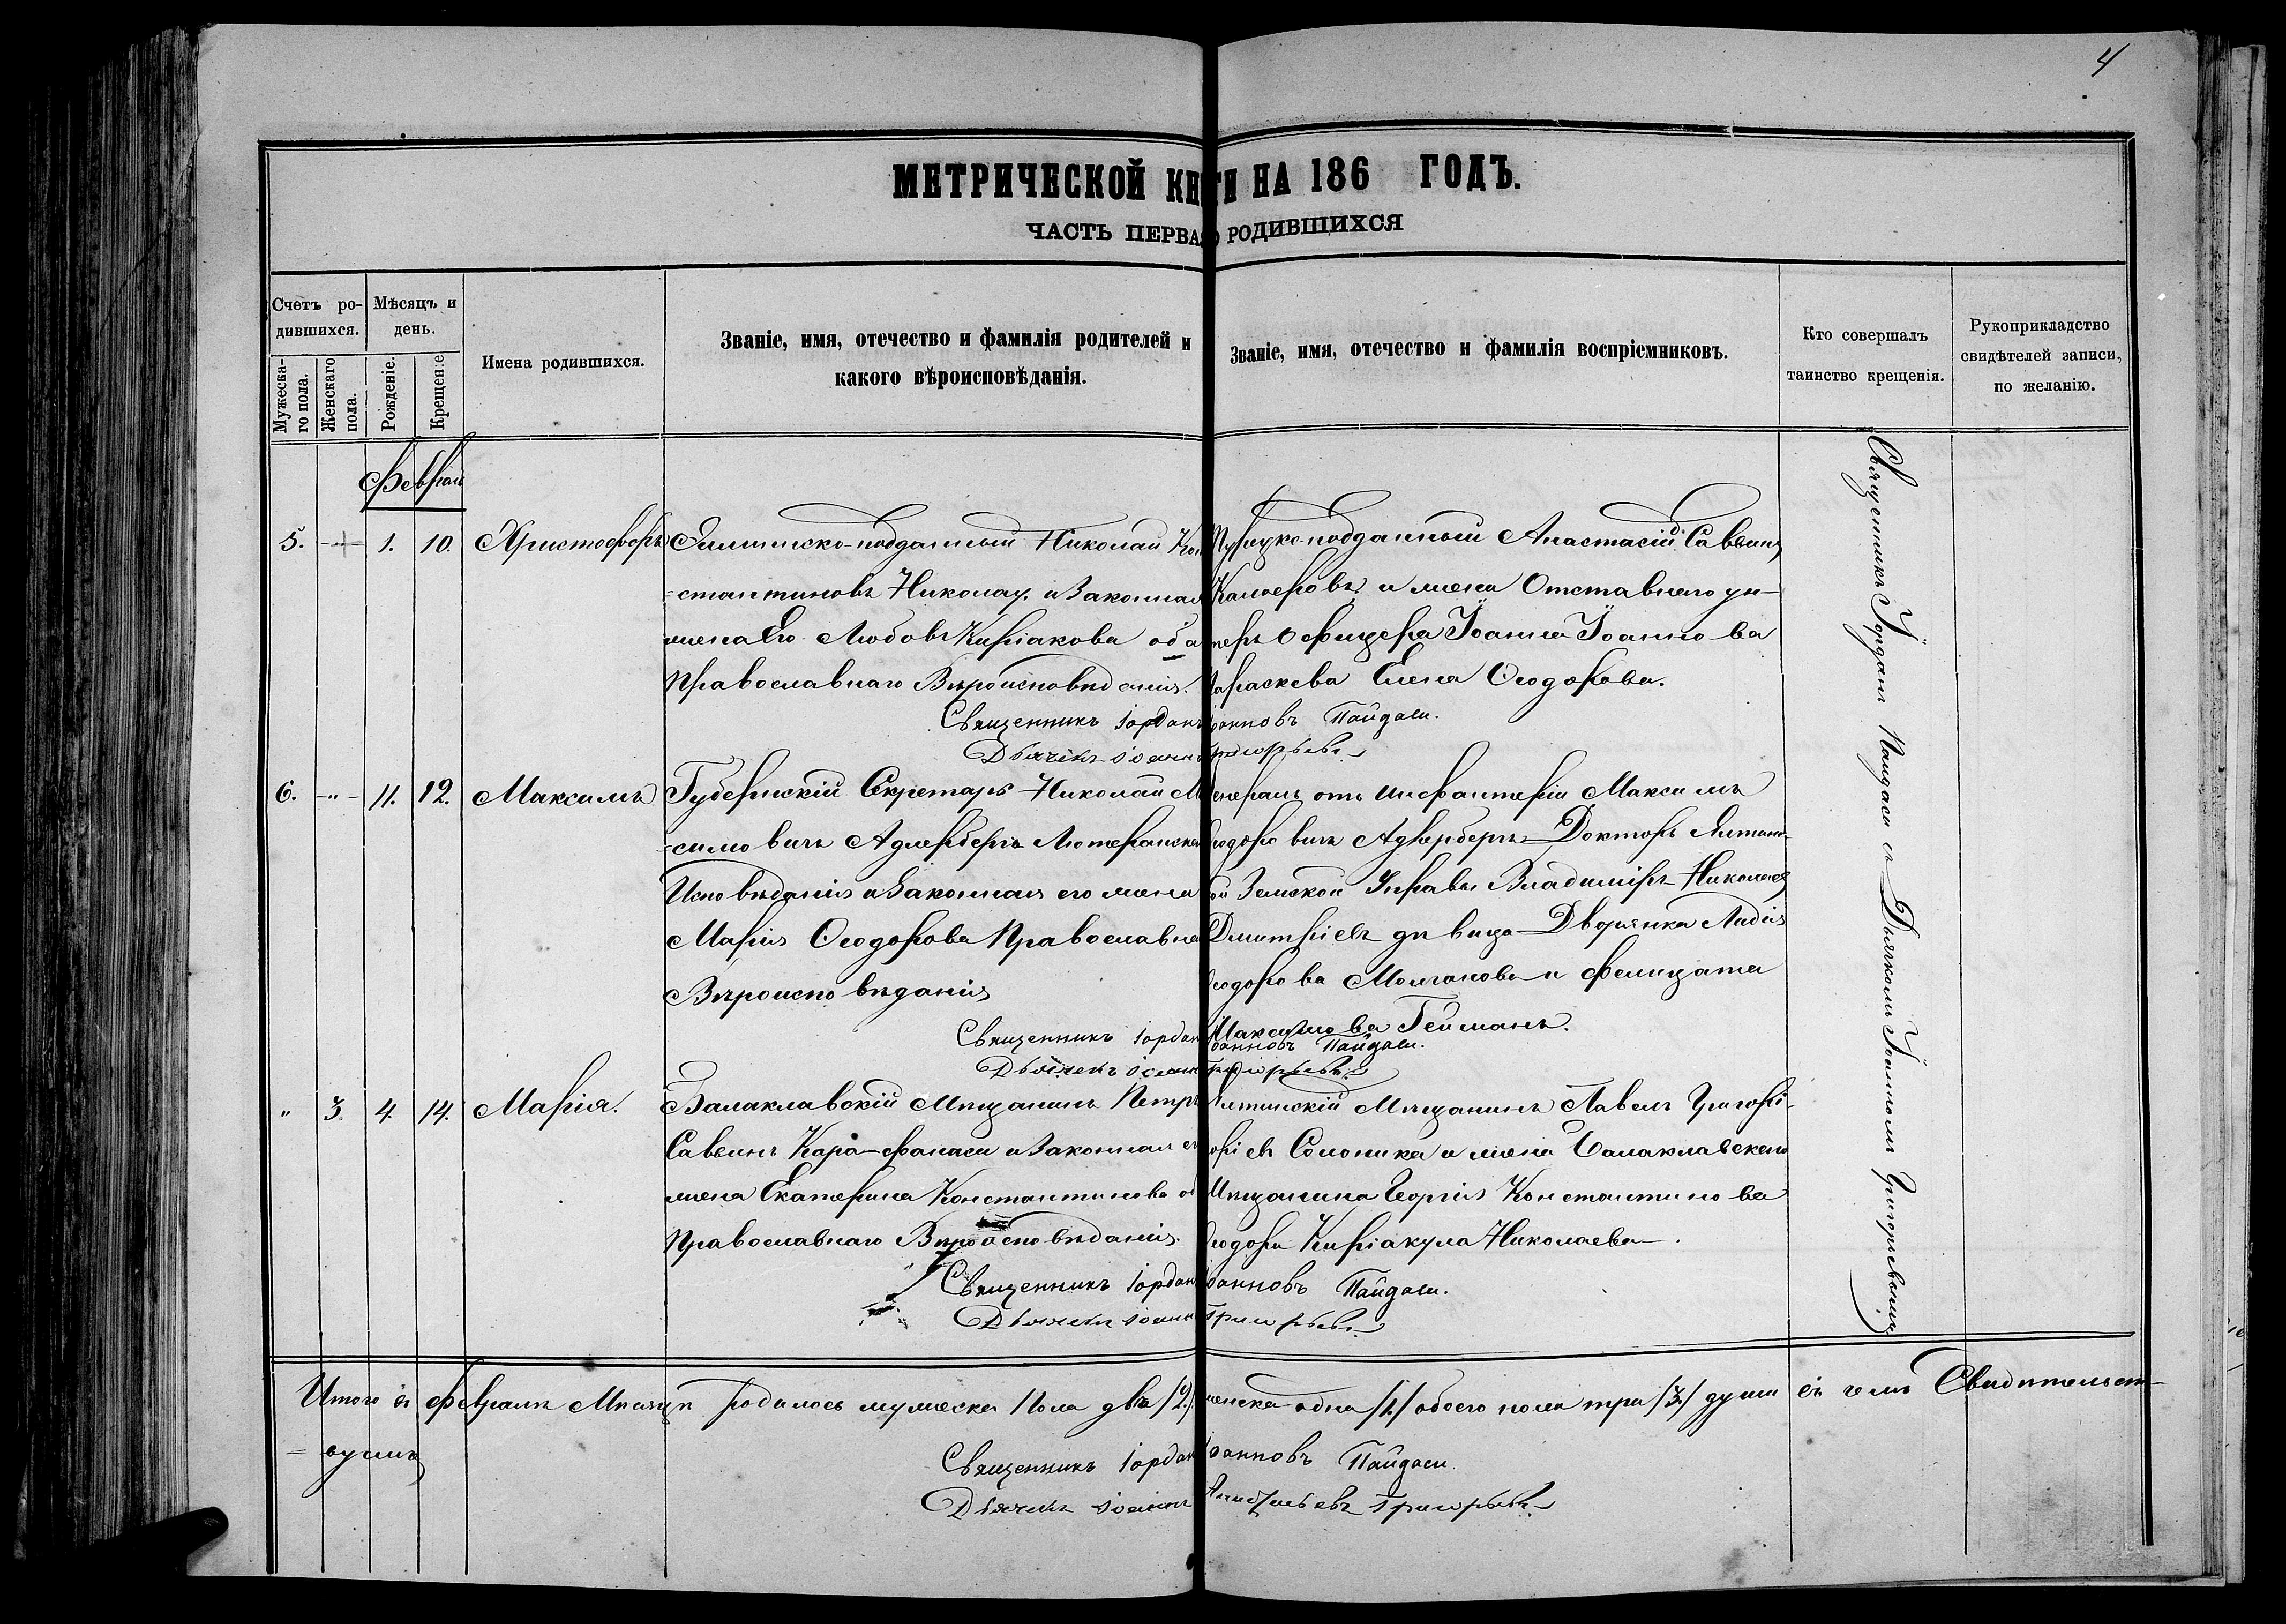 4
МЕТРИЧЕСКОЙ КНИГИ НА 186 ГОДЪ.
ЧАСТЬ ПЕРВАЯ О РОДИВШИХСЯ
Счетъ ро-
дившихся.
Мужеска-
го пола.
Женскаго
пола.
Мѣсяцъ и
день.
Рожденіе.
Крещеніе
Имена родившихся.
Званіе, имя, отечество и фамилія родителей и
какого вѣроисповѣданія.
Званіе, имя, отечество и фамилія воспріемниковъ.
Кто совершалъ
таинство крещенія.
Рукоприкладство
свидѣтелей записи,
по желанію.
Февраль
5. 1. 10. Христофоръ
Еллинско-подданный Николай Кон
=стантиновъ Николау. и Законная
жена Его Любовь Киріакова оба
Православнаго Вѣроисповѣданія.
Турецко-подданный Анастасій Саввинъ
и жена Отставнаго ун-
теръ Офицера Іоанна Іоаннова
Параскева Елена Ѳеодорова.
Священникъ Іорданъ Іоанновъ Пайдаси.
Дьячекъ Іоаннъ Григорьевъ
6. -"- 11. 12. Максимъ
Губернскій Секретарь Николай Мак
=симовичъ Адлербергъ Лютеранска
Исповѣданія и Законная его жена
Марія Ѳеодорова Православна
Вѣроисповѣданія
Генералъ отъ Инфантеріи Максимъ
Ѳеодоровичъ Адлербергъ Докторъ Ялтинс-
ой Земской Управы Владиміръ Николаев
Дмитріевъ дѣвица Дворянка Лидія
Ѳеодорова Молчанова и Фелицата
Максимова Гейманъ.
Священникъ Іорданъ Іоанновъ Пайдаси.
Дьячекъ Іоаннъ Григорьевъ
" 3. 4. 14. Марія.
Балаклавскій Мѣщанинъ Петръ
Саввинъ Кара-фанаси и Законная ег
жена Екатерина Константинова об
Православнаго Вѣроисповѣданія.
Ялтинскій Мѣщанинъ Павелъ Григорі-
оріевъ Солоника и жена Балаклавскаго
Мѣщанина Георгія Константинова
Ѳеодора Киріакула Николаева.
Священникъ Іорданъ Іоанновъ Пайдаси.
Дьячекъ Іоаннъ Григорьевъ
Священникъ Іорданъ Пайдаси съ Дьячкомъ Іоанномъ Григорьевымъ
Итого въ Февралѣ Мѣсяцѣ родилось мужеска Пола два /2/. женска одна /1./ обоего пола три /3./ души въ чемъ Свидѣтельст-
=вуемъ
Священникъ Іорданъ Іоанновъ Пайдаси.
Дьячекъ Іоаннъ Григорьевъ